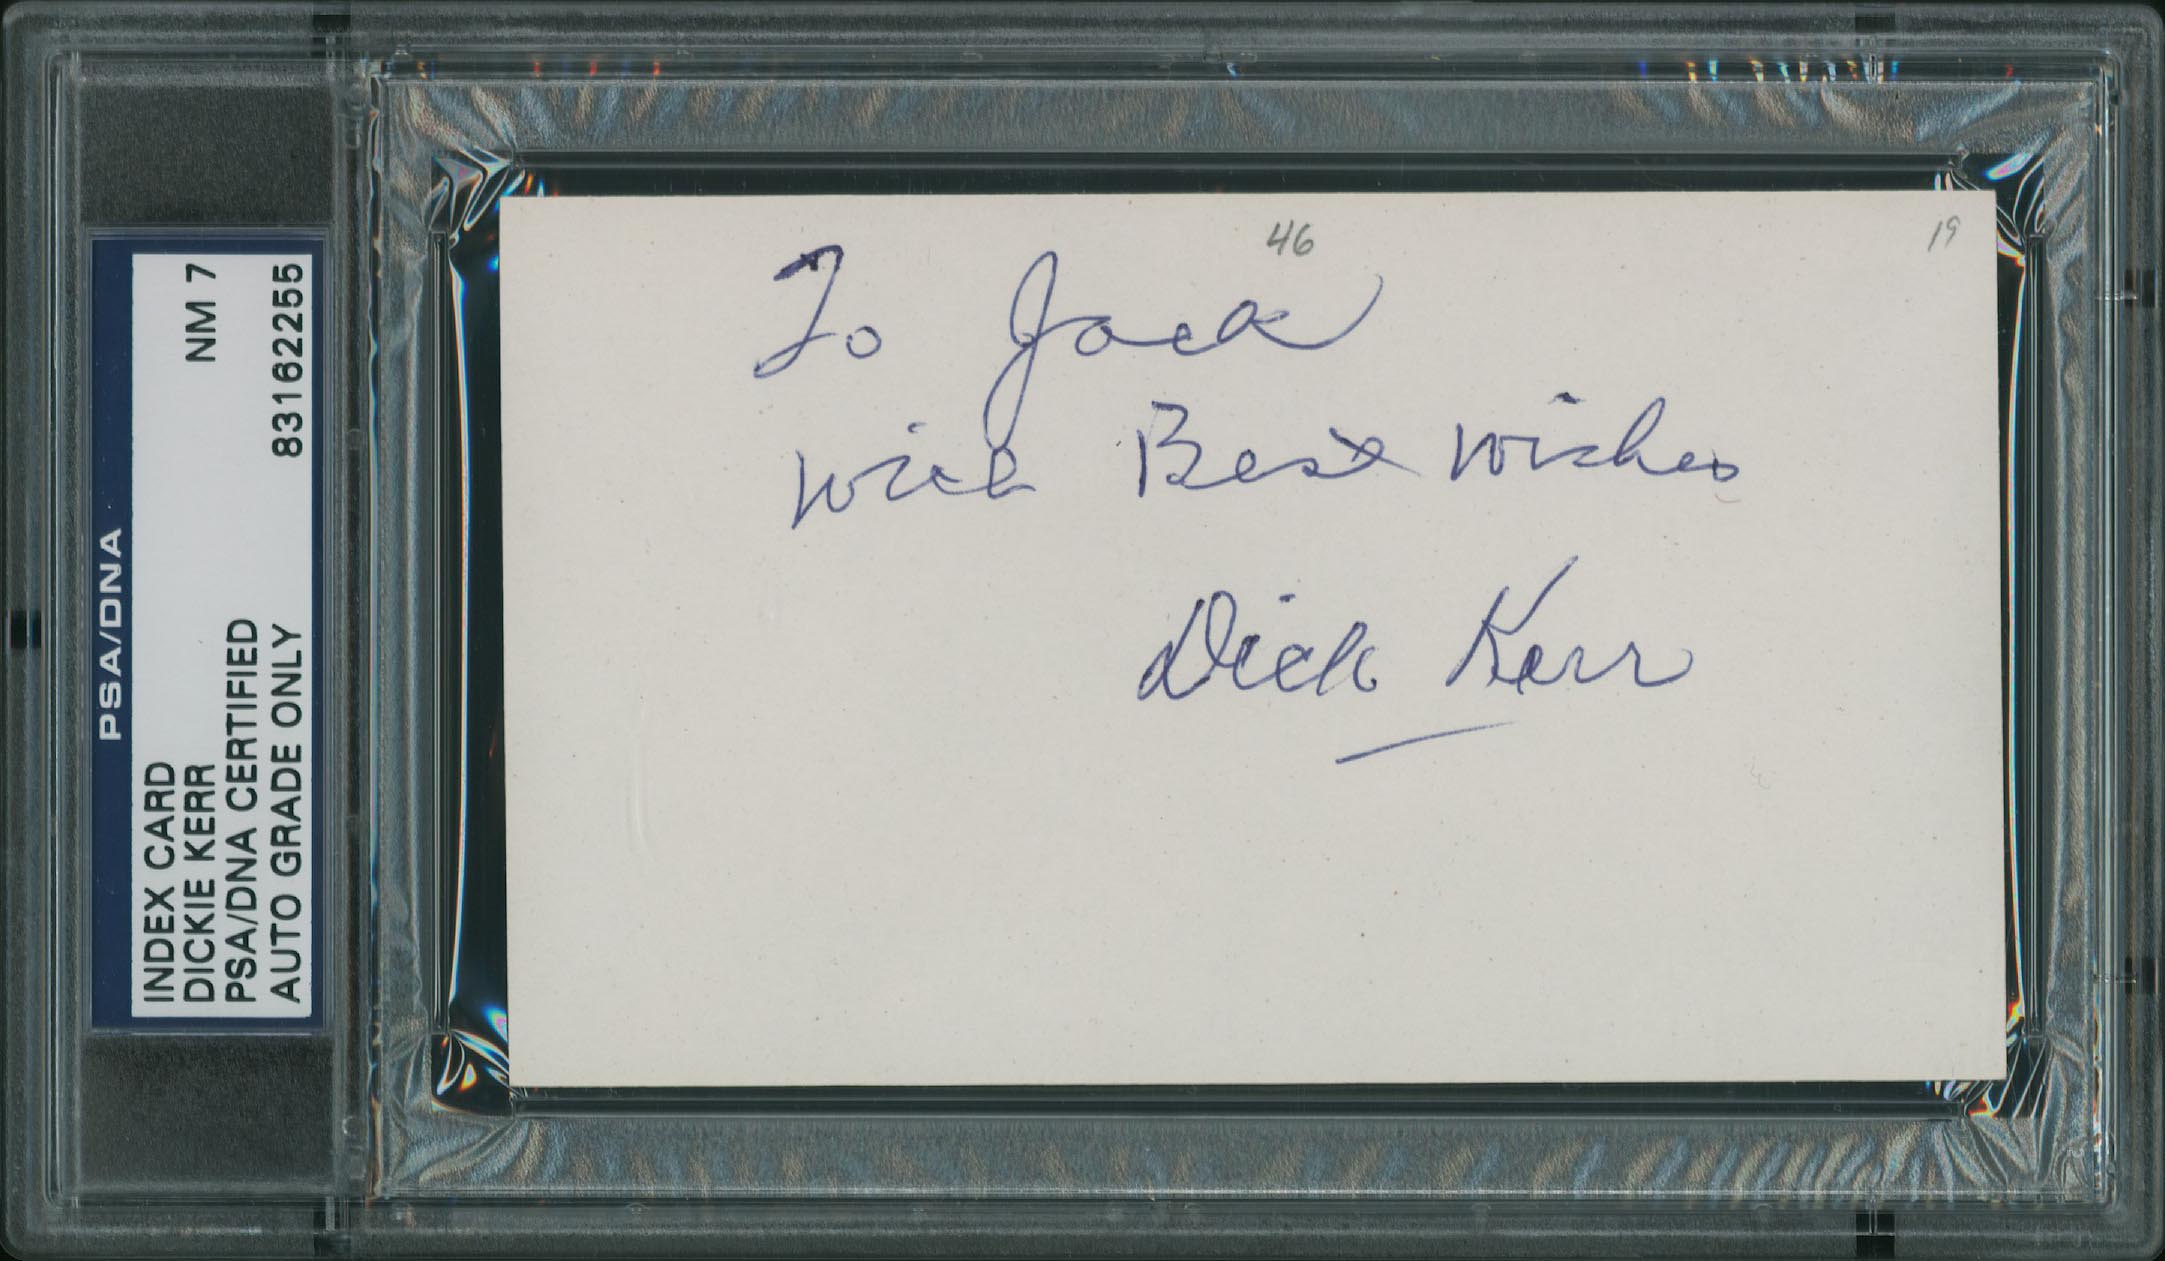 PSA/DNA
INDEX CARD
DICKIE KERR
NM 7
PSA/DNA CERTIFIED
AUTO GRADE ONLY
83162255
46
19
To Jack
With Best Wishes
Dick Kerr